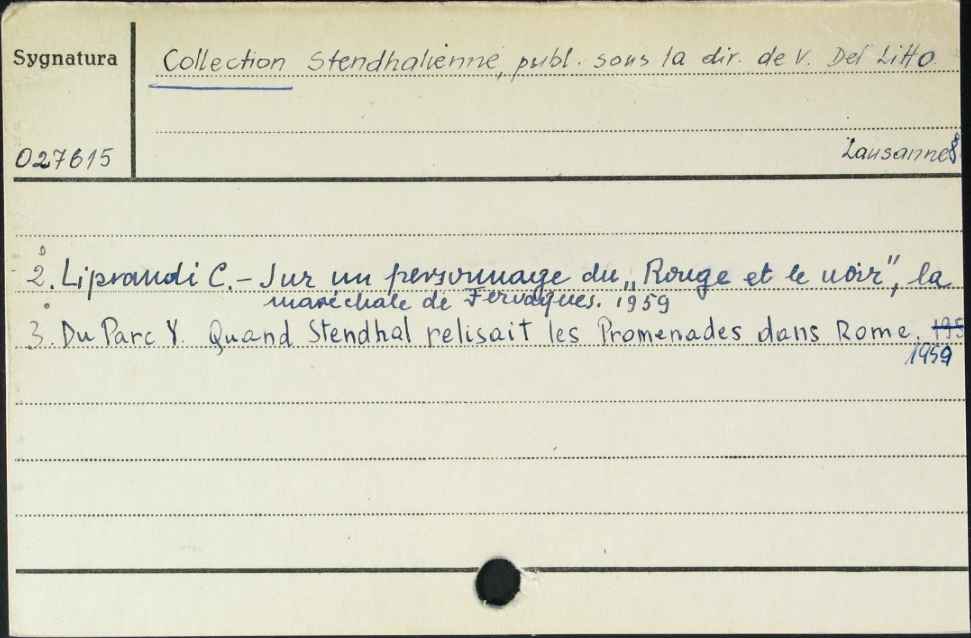 Sygnatura Collection Stendhalienne, publ. sous la dir. de V. Del Litto
027615 Lausanne
2. Liprandi C. - Sur un personnage du „Rouge et le noir", la
maréchale de Fervaques. 1959
3. Du Parc Y. Quand Stendhal relisait les Promenades dans Rome.
1959